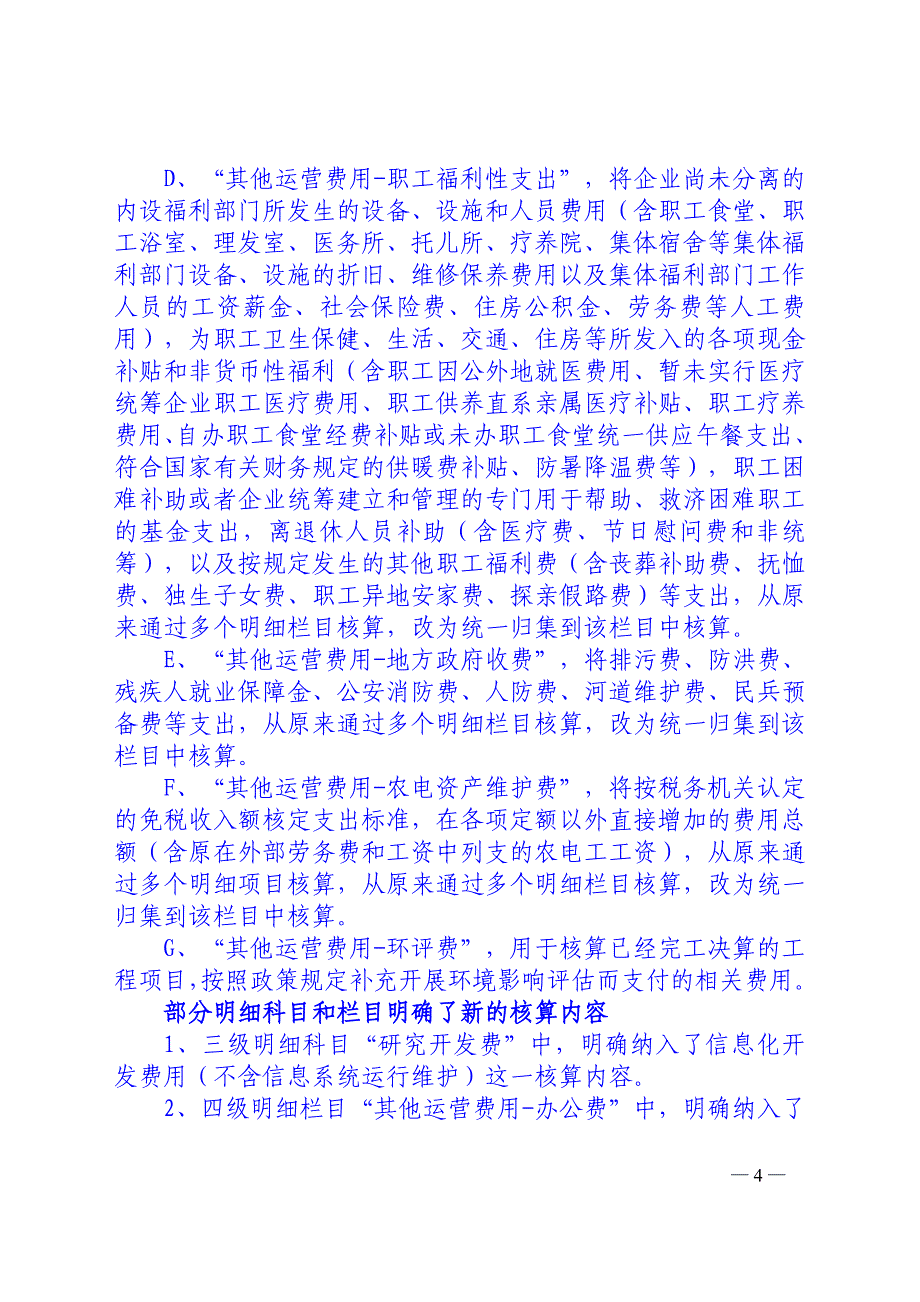 D、“其他运营费用-职工福利性支出”，将企业尚未分离的
内设福利部门所发生的设备、设施和人员费用（含职工食堂、职
工浴室、理发室、医务所、托儿所、疗养院、集体宿舍等集体福
利部门设备、设施的折旧、维修保养费用以及集体福利部门工作
人员的工资薪金、社会保险费、住房公积金、劳务费等人工费
用），为职工卫生保健、生活、交通、住房等所发入的各项现金
补贴和非货币性福利（含职工因公外地就医费用、暂未实行医疗
统筹企业职工医疗费用、职工供养直系亲属医疗补贴、职工疗养
费用、自办职工食堂经费补贴或未办职工食堂统一供应午餐支出、
符合国家有关财务规定的供暖费补贴、防暑降温费等），职工困
难补助或者企业统筹建立和管理的专门用于帮助、救济困难职工
的基金支出，离退休人员补助（含医疗费、节日慰问费和非统
筹），以及按规定发生的其他职工福利费（含丧葬补助费、抚恤
费、独生子女费、职工异地安家费、探亲假路费）等支出，从原
来通过多个明细栏目核算，改为统一归集到该栏目中核算。
E、“其他运营费用-地方政府收费”，将排污费、防洪费、
残疾人就业保障金、公安消防费、人防费、河道维护费、民兵预
备费等支出，从原来通过多个明细栏目核算，改为统一归集到该
栏目中核算。
F、“其他运营费用-农电资产维护费”，将按税务机关认定
的免税收入额核定支出标准，在各项定额以外直接增加的费用总
额（含原在外部劳务费和工资中列支的农电工工资），从原来通
过多个明细项目核算，从原来通过多个明细栏目核算，改为统一
归集到该栏目中核算。
G、“其他运营费用-环评费”，用于核算已经完工决算的工
程项目，按照政策规定补充开展环境影响评估而支付的相关费用。
部分明细科目和栏目明确了新的核算内容
1、三级明细科目“研究开发费”中，明确纳入了信息化开
发费用（不含信息系统运行维护）这一核算内容。
2、四级明细栏目“其他运营费用-办公费”中，明确纳入了
— 4 —